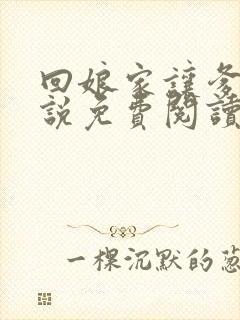 回娘家讓爹
說免費閱讀
一棵沉默的蔥